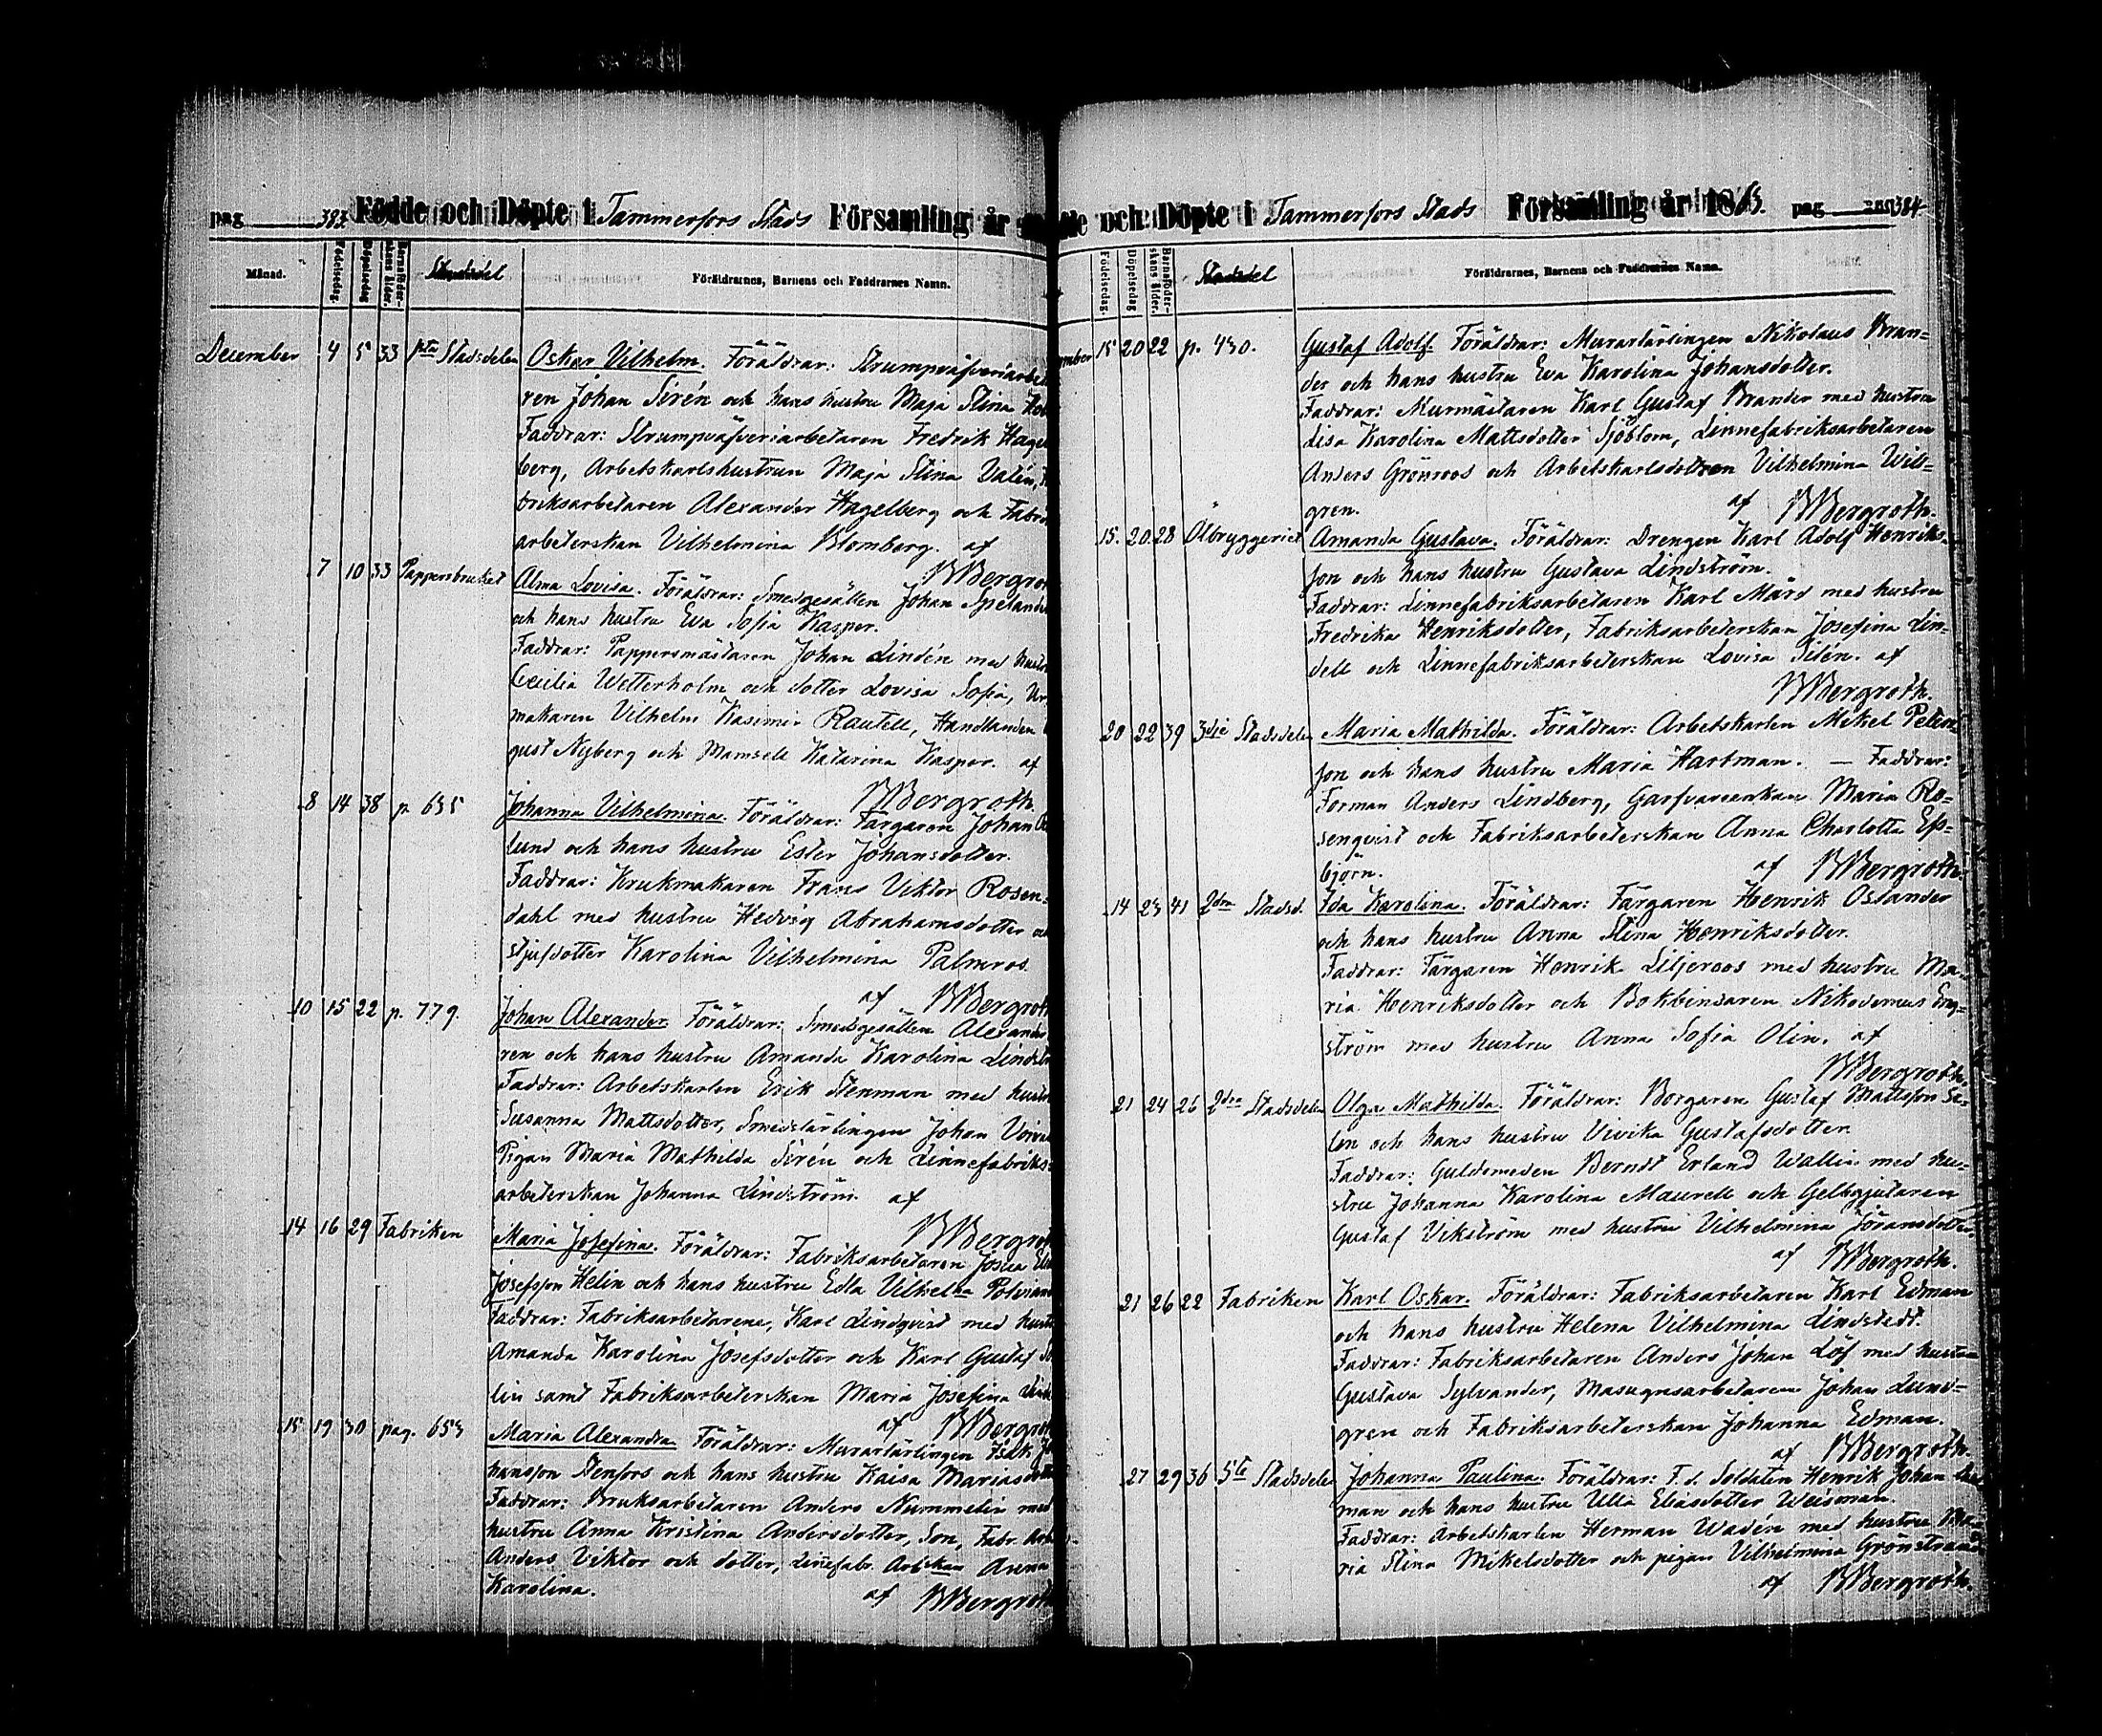 pag 383. Födde och Döpte i Tammerfors Stads Församling år
Månad. Födelsedag. Döpelsedag Barnaföderskans ålder. Stadsdel Föräldrarnes, Barnens och Faddrarnes Namn.
December 4 5 33 Stadsdelen Oskar Vilhelm. Föräldrar: Strumpväfveriarbeta
ren Johan Sirén och hans hustru Maja Stina
Faddrar: Strumpväfveriarbetaren Fredrik Hagel
berg, Arbetskarlshustrun Maja Stina Dalén,
briksarbetaren Alexander Hagelberg och Fabriks
arbeterskan Vilhelmina Blomberg. af
BBergroth
7 10 33 Pappersbruket Alma Lovisa. Föräldrar: Smedgesällen Johan Spelander
och hans hustru Eva Sofia Kasper.
Faddrar: Pappersmästaren Johan Lindén med hustru
Cecilia Wetterholm och dotter Lovisa Sofia, Ur
makaren Vilhelm Kasimir Rautell, Handlanden
gust Nyberg och Mamsell Katarina Kasper. af
BBergroth.
8 14 38 p. 635 Johanna Vilhelmina. Föräldrar: Färgaren Johan
lund och hans hustru Ester Johansdotter.
Faddrar: Krukmakaren Frans Viktor Rosen-
dahl med hustru Hedvig Abrahamsdotter och
stjufdotter Karolina Vilhelmina Palmros.
af BBergroth
10 15 22 p. 779. Johan Alexander. Föräldrar: Smedsgesällen Alexander
ren och hans hustru Amanda Karolina Lindström
Faddrar: Arbetskarlen Erik Stenman med hustru
Susanna Mattsdotter, Smedslärlingen Johan
Pigan Maria Mathilda Siren och Linnefabriks-
arbeterskan Johanna Lindström. af
BBergroth
14 16 29 Fabriken Maria Josefina. Föräldrar: Fabriksarbetaren Josua
Josefsson Helin och hans hustru Edla Vilhelma Polviander
Faddrar: Fabriksarbetarene, Karl Lindqvist med hustru
Amanda Karolina Josefsdotter och Karl Gustaf
lin samt Fabriksarbeterskan Maria Josefina
af BBergroth
15 19 30 pag. 653 Maria Alexandra. Föräldrar: Murarlärlingen Isak Jo
hansson Stenfors och hans hustru Kaisa Mariasdotter
Faddrar: Bruksarbetaren Anders Nummelin med
hustru Anna Kristina Andersdotter, Son, Fabr. Arb
Anders Viktor och dotter, Linnefabr. Arbskan Anna
Karolina. af BBergroth
och Döpte i Tammerfors Stads Församling år 1863. pag 384.
Födelsedag. Döpelsedag Barnaföderskans ålder. Stadsdel Föräldrarnes, Barnens och Faddrarnes Namn.
ember 15 20 22 p. 430. Gustaf Adolf. Föräldrar: Murarlärlingen Nikolaus Bran-
der och hans hustru Eva Karolina Johansdotter.
Faddrar: Murmästaren Karl Gustaf Brander med hustru
Lisa Karolina Mattsdotter Sjöblom, Linnefabriksarbetaren
Anders Grönroos och Arbetskarlsdottren Vilhelmina Will-
gren. af BBergroth.
15. 20. 28 Ölbryggeriet Amanda Gustava. Föräldrar: Drengen Karl Adolf Henriks-
son och hans hustru Gustava Lindström.
Faddrar: Linnefabriksarbetaren Karl Mård med hustru
Fredrika Henriksdotter, Fabriksarbeterskan Josefina Lin-
dell och Linnefabriksarbeterskan Lovisa Silén. af
BBergroth.
20 22 39 3die Stadsdelen Maria Mathilda. Föräldrar: Arbetskarlen Mikel Peters-
son och hans hustru Maria Hartman. — Faddrar:
Forman Anders Lindberg, Garfvareenkan Maria Ro-
senqvist och Fabriksarbeterskan Anna Charlotta Es-
björn. af BBergroth.
14 23 41 2dra Stadsd. Ida Karolina. Föräldrar: Färgaren Henrik Oslander
och hans hustru Anna Stina Henriksdotter.
Faddrar: Färgaren Henrik Liljeroos med hustru Ma-
ria Henriksdotter och Bokbindaren Nikodemus Eng-
ström med hustru Anna Sofia Olin. af
BBergroth.
21 24 26 2dra Stadsdelen Olga Mathilda. Föräldrar: Borgaren Gustaf Mattsson Sa-
len och hans hustru Vivika Gustafsdotter.
Faddrar: Guldsmeden Berndt Erland Wallin med hu-
stru Johanna Karolina Maurell och Gelbgjutaren
Gustaf Vikström med hustru Vilhelmina Göransdotter.
af BBergroth.
21 26 22 Fabriken Karl Oskar. Föräldrar: Fabriksarbetaren Karl Edman
och hans hustru Helena Vilhelmina Lindstedt.
Faddrar: Fabriksarbetaren Anders Johan Löf med hustru
Gustava Sylvander, Masugnsarbetaren Johan Lund-
gren och Fabriksarbeterskan Johanna Edman.
af BBergroth.
27 29 36 5te Stadsdelen Johanna Paulina. Föräldrar: F.d. Soldaten Henrik Johan
man och hans hustru Ulla Eliasdotter Weisman.
Faddrar: Arbetskarlen Herman Wadén med hustru Ma-
ria Stina Mikelsdotter och pigan Vilhelmina Grönstrand
af BBergroth.